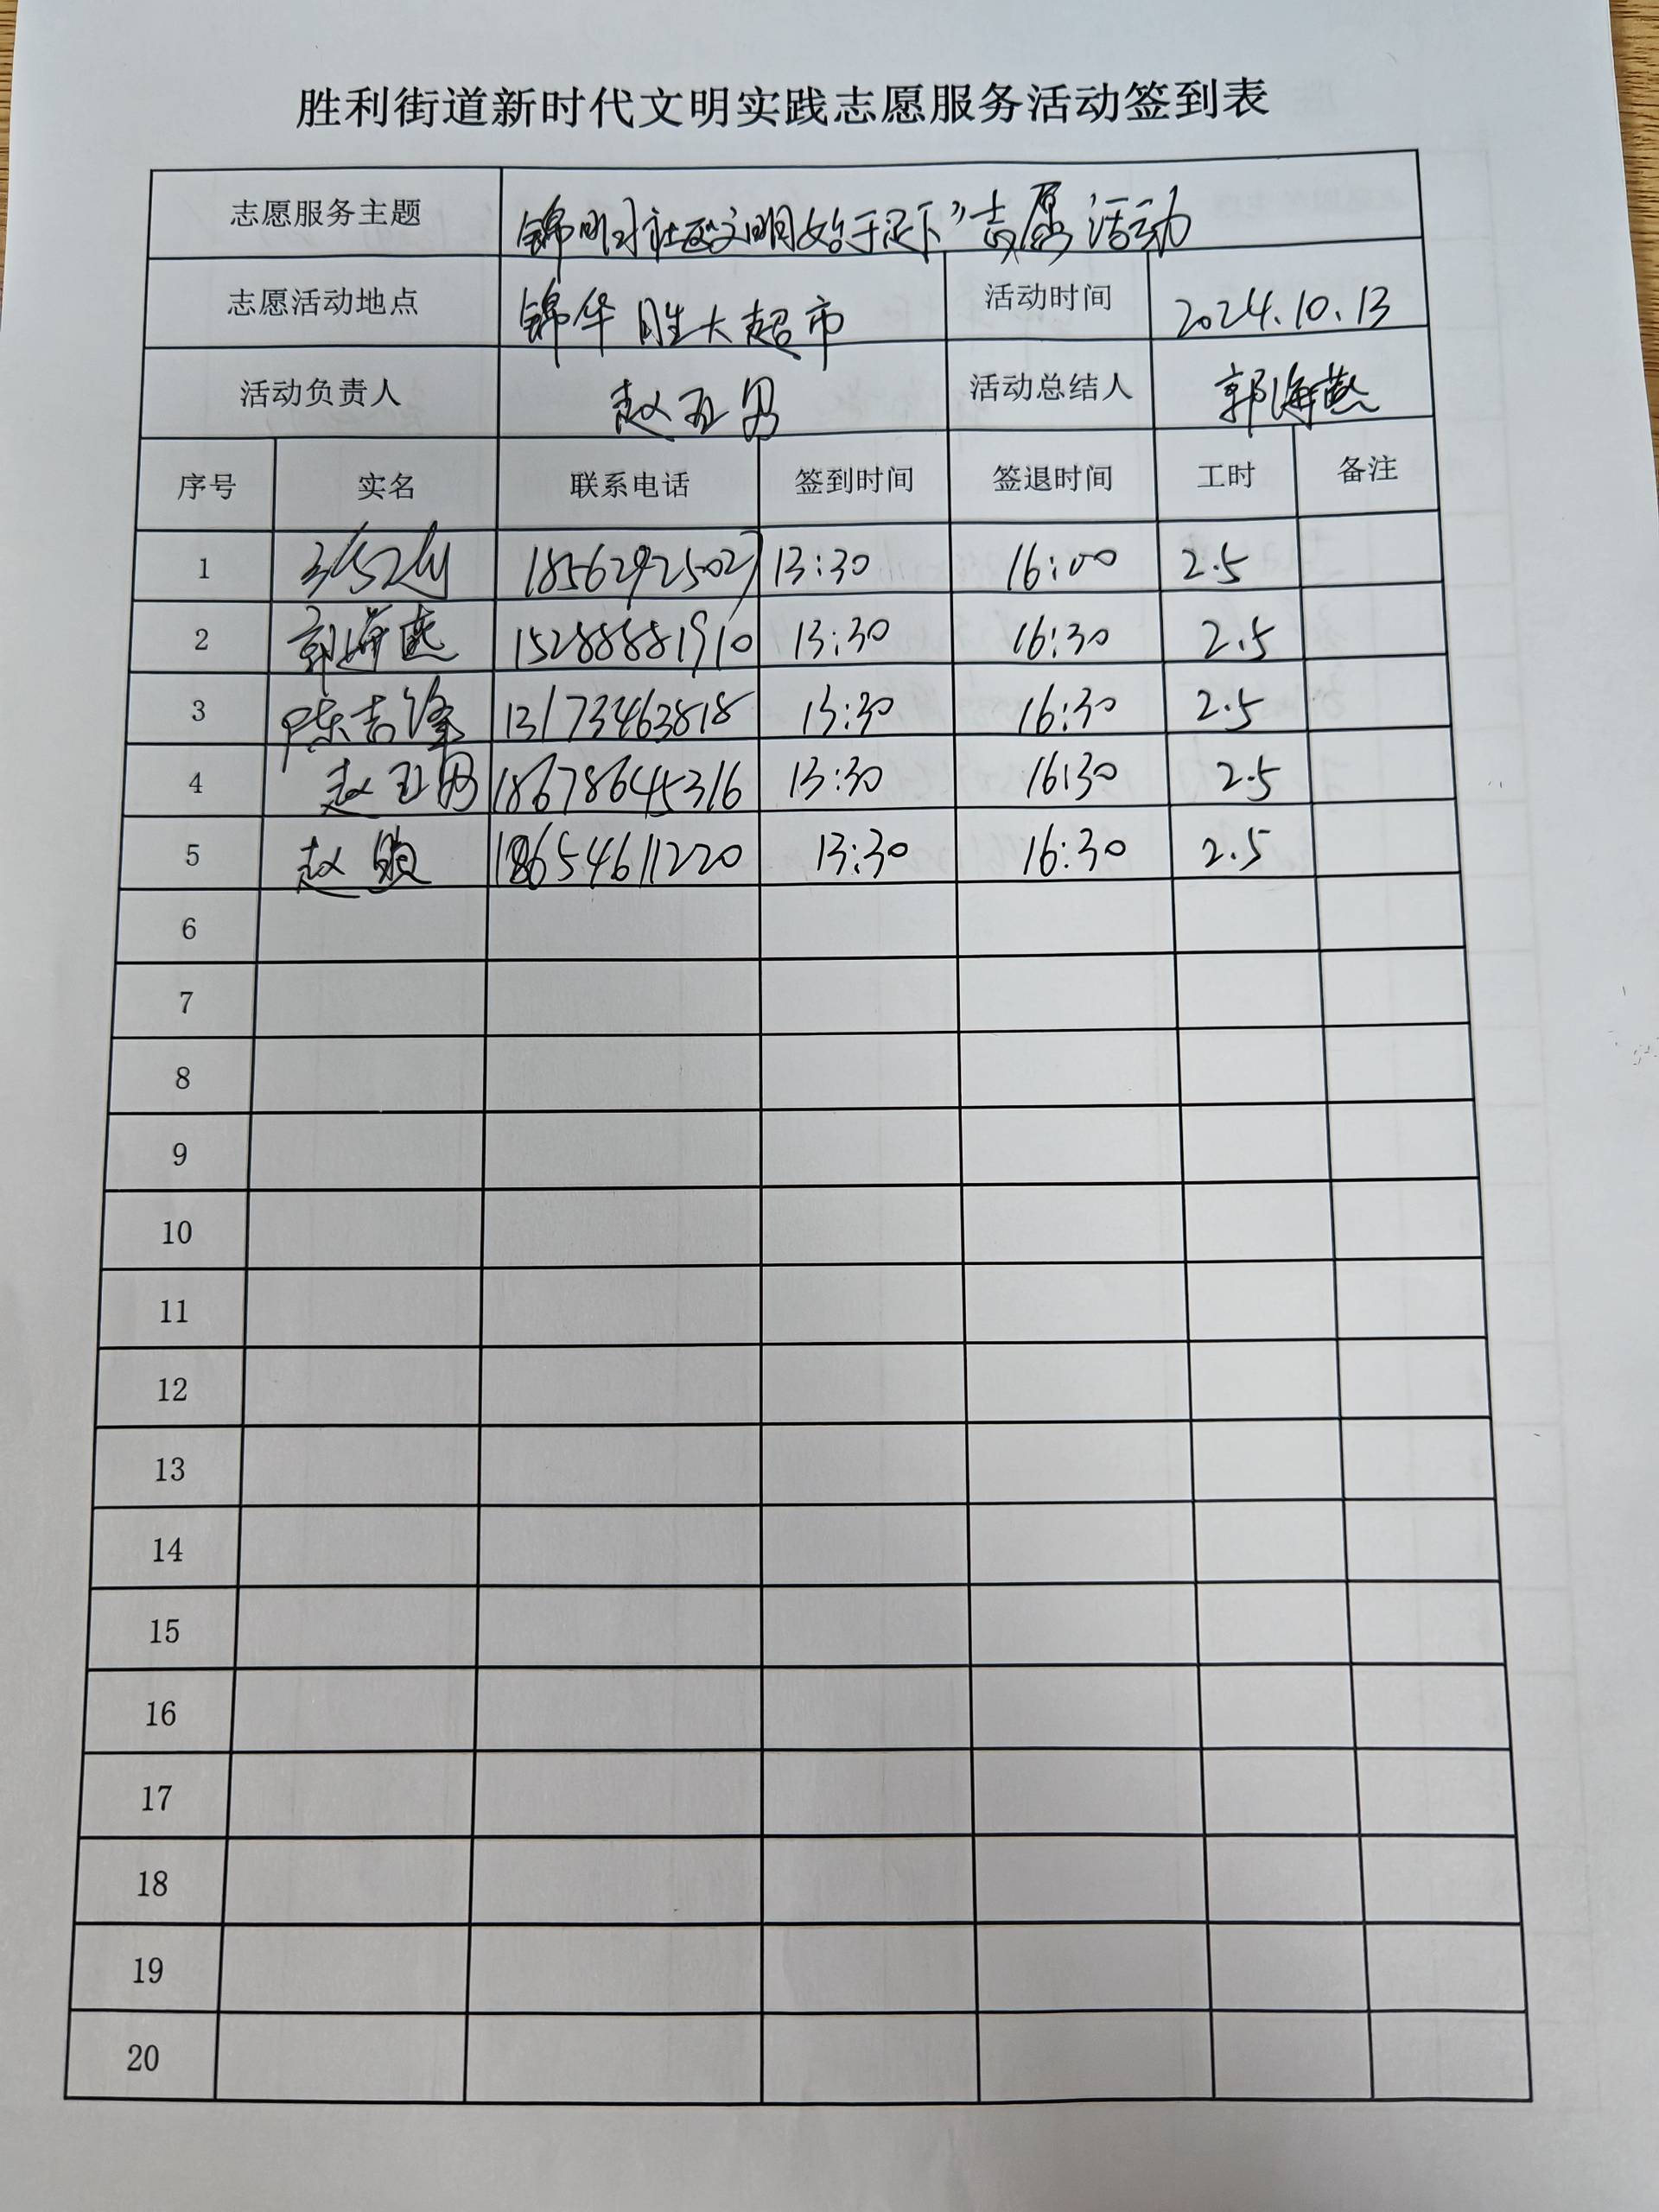 胜利街道新时代文明实践志愿服务活动签到表
志愿服务主题 社区文明始于足下”志愿活动
志愿活动地点 锦华胜大超市 活动时间 2024.10.13
活动负责人 赵玉男 活动总结人 郭海燕
序号 实名 联系电话 签到时间 签退时间 工时 备注
1 18562925027 13:30 16:00 2.5
2 郭海燕 15288881910 13:30 16:30 2.5
3 陈吉锋 13173463818 13:30 16:30 2.5
4 赵玉男 18678645316 13:30 16:30 2.5
5 赵 18654611220 13:30 16:30 2.5
6
7
8
9
10
11
12
13
14
15
16
17
18
19
20